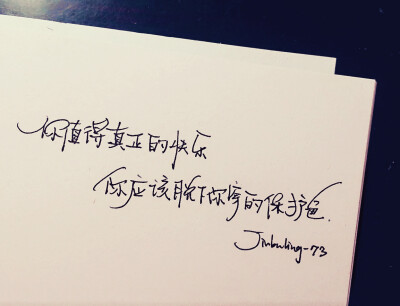 你值得真正的快乐
你应该脱下你穿的保护色.
Jinbuling-73